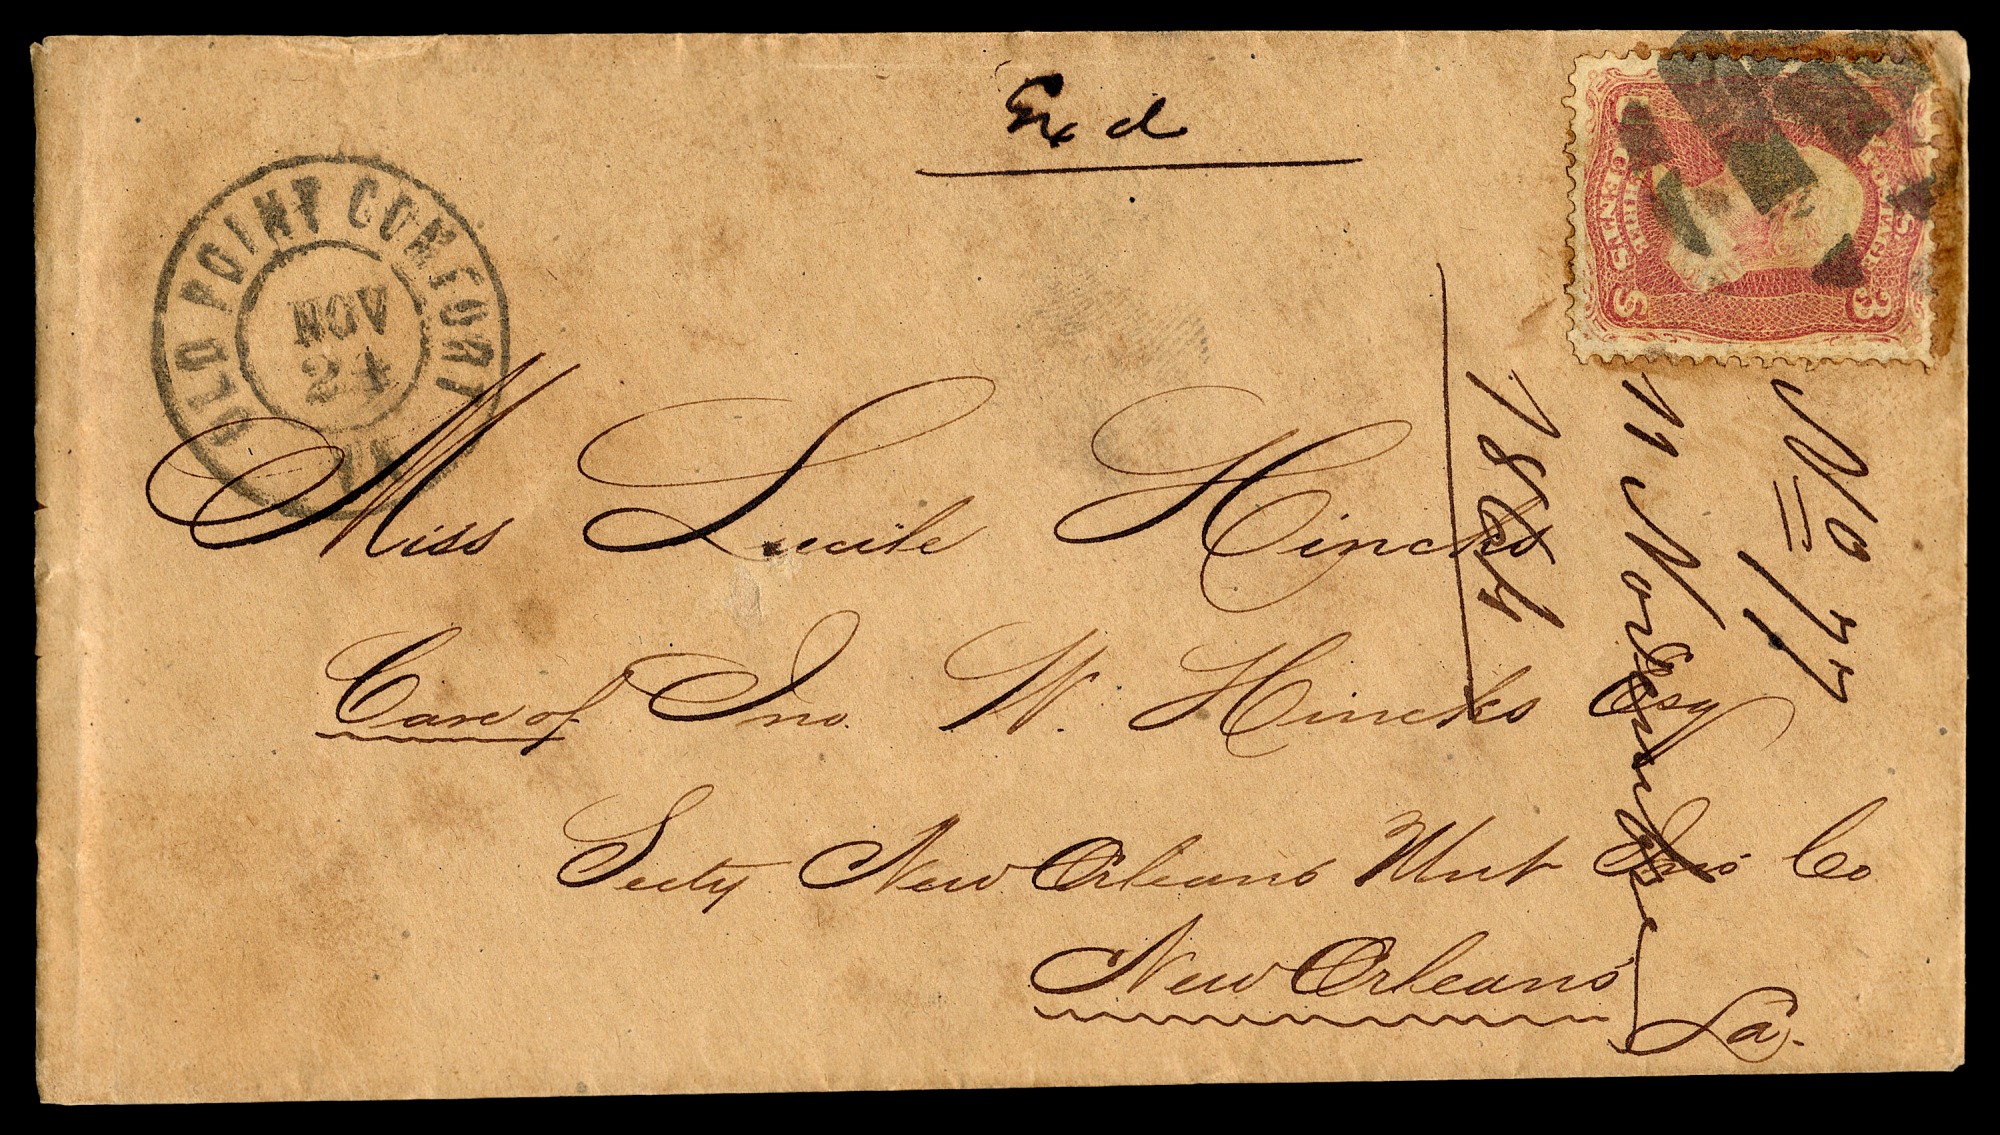 Ex d
OLD POINT COMFORT VA
NOV
24
U POSTAGE S
3 THREE CENTS
Miss Lucile Hincks
Care of Jno. W. Hincks Esq
Secty New Orleans Mut Ins Co
New Orleans
La.
No 77
11 November
1864